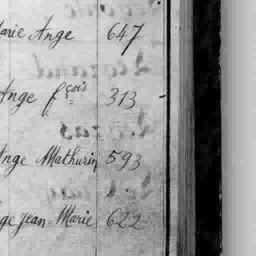 Marie Ange 647
Ange fçois 313
Ange Mathurin 593
Ange Jean-Marie 622